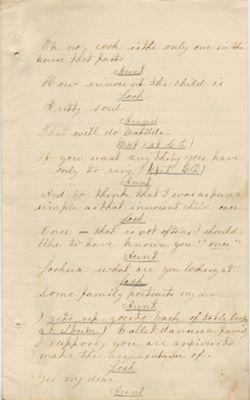 Oh no, cook is the only one in the
house that fasts
Aunt
How innocent the child is
Josh
Pretty soul
Aunt
That will do Matilda
Mat (at C.D.)
If you want anything you have
only to ring (Exit C.D.)
Aunt
And to think that I was as pure &
simple as that innocent child once
Josh
Once — that is not often, I should
like to have known you "once"
Aunt
Joshua what are you looking at
Josh
Some family portraits my dear
Aunt
(gets up goes to back of table looks
at album) Ballet dancers a family
I suppose you are anxious to
make the acquaintance of.
Josh
Yes my dear
Aunt